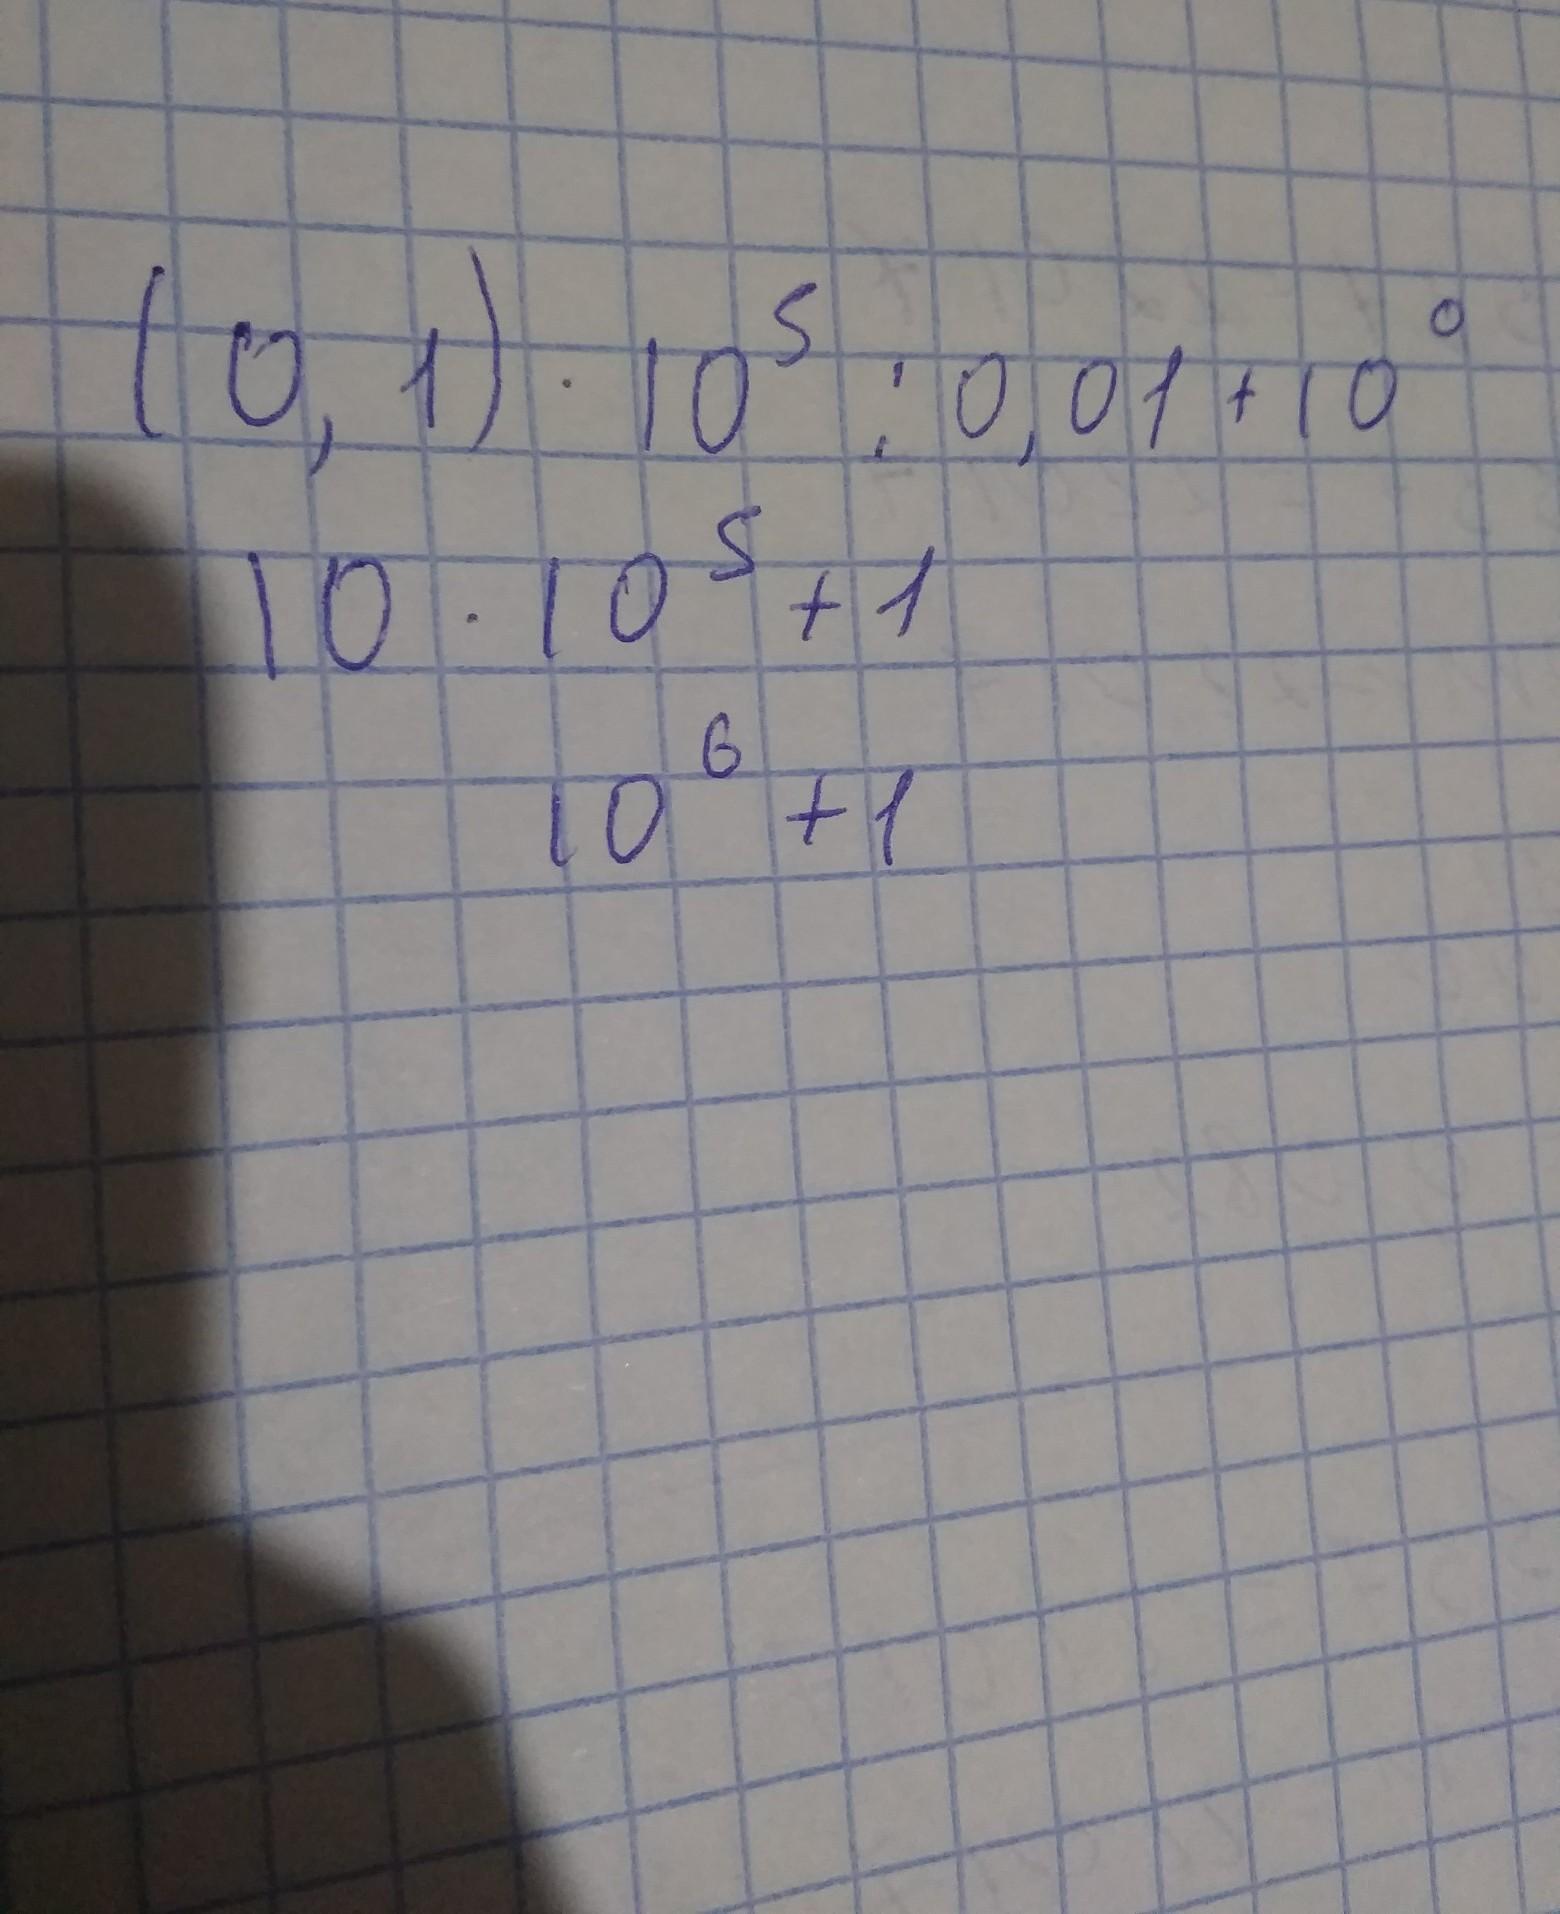 (0,1) · 10⁵ : 0,01 + 10⁰
10 · 10⁵ + 1
10⁶ + 1